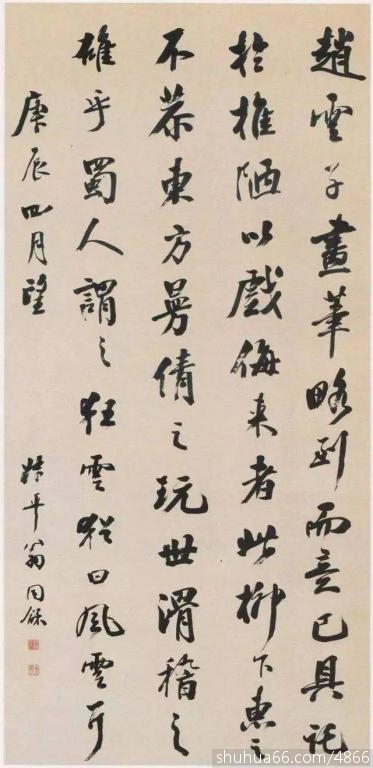 趙雲子畫筆略到而意已具託
於椎陋以戲侮來者此柳下惠之
不恭東方曼倩之玩世滑稽之
雄乎蜀人謂之狂雲猶曰風雲耳
庚辰四月望
松平翁同龢
shuhua66.com/4866